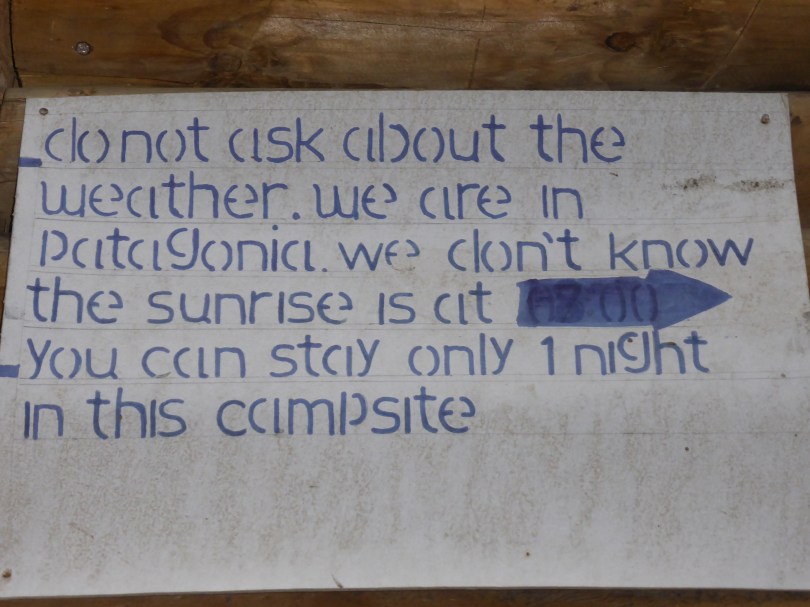 - do not ask about the
weather. we are in
patagonia. we don't know
the sunrise is at
- you can stay only 1 night
in this campsite